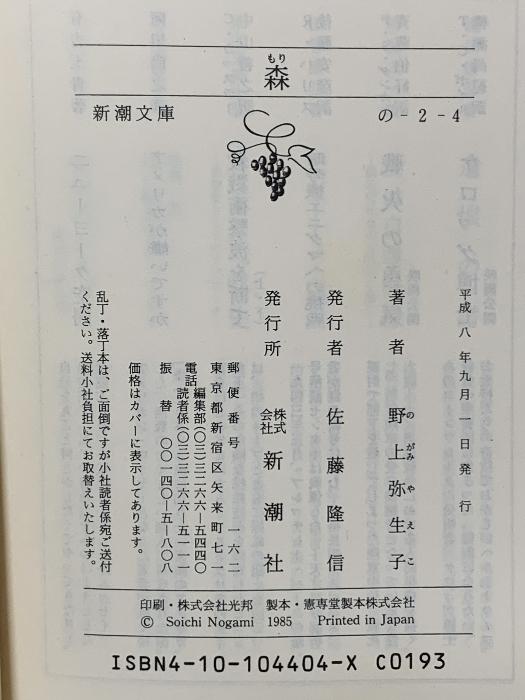 もり
森
新潮文庫
の-2-4
平成八年九月一日発行
著者 野上弥生子
のがみやえこ
発行者 佐藤隆信
発行所 株式会社 新潮社
郵便番号 一六二
東京都新宿区矢来町七一
電話 編集部(〇三)三二六六-五四四〇
読者係(〇三)三二六六-五一一一
振替 〇〇一四〇-五-八〇八
価格はカバーに表示してあります。
乱丁・落丁本は、ご面倒ですが小社読者係宛ご送付
ください。送料小社負担にてお取替えいたします。
印刷・株式会社光邦 製本・憲専堂製本株式会社
© Soichi Nogami 1985 Printed in Japan
ISBN4-10-104404-X C0193